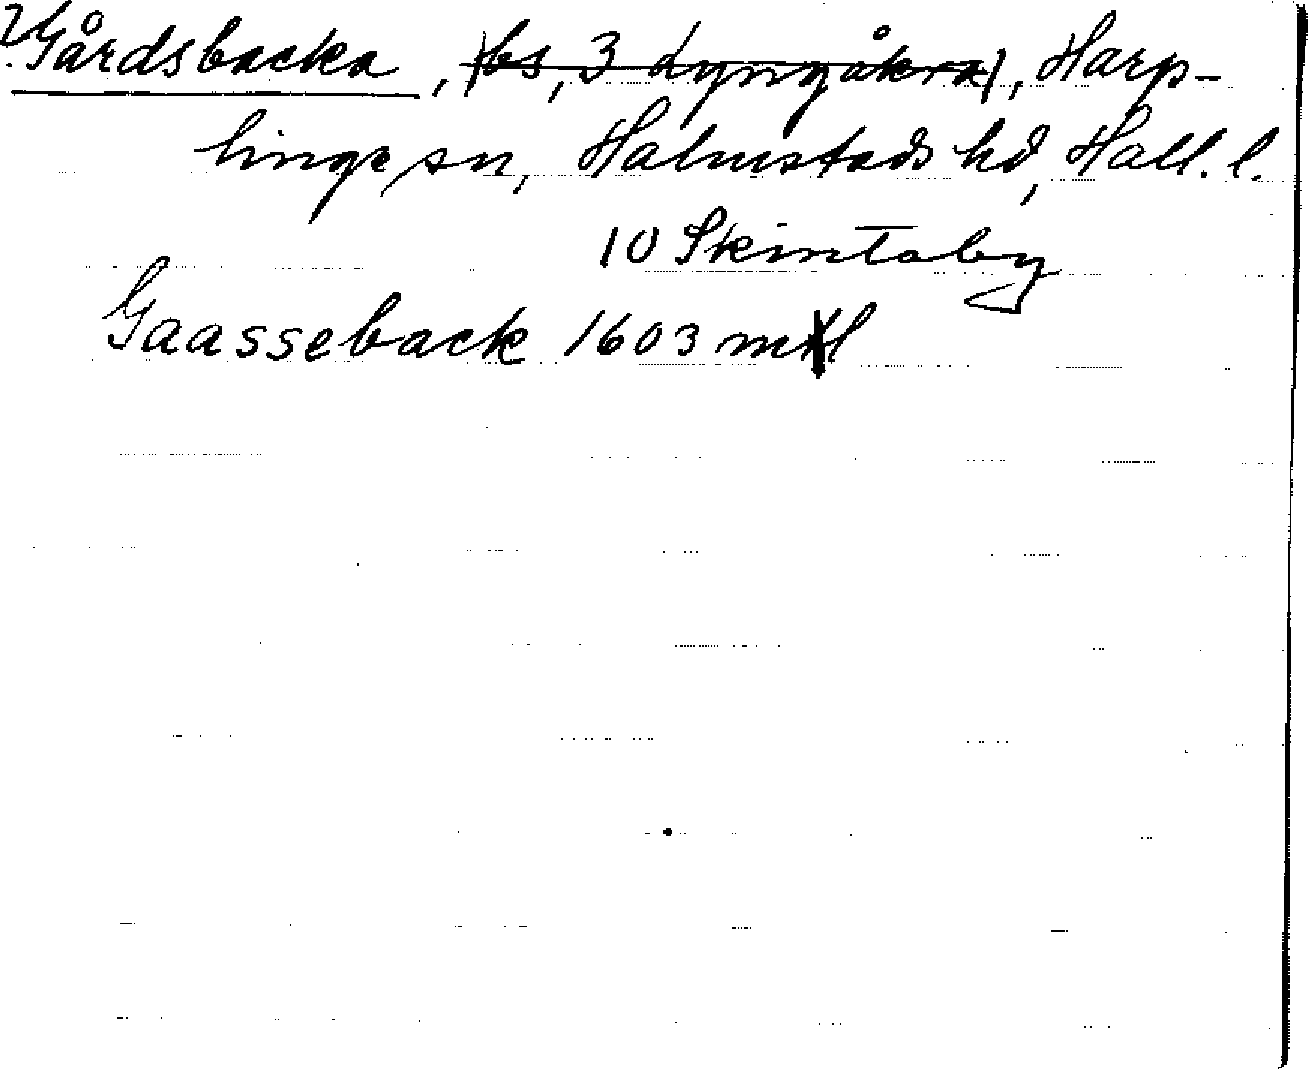 ? Gårdsbacka, (bs, 3 Lyngåkra), Harp-
linge sn, Halmstads hd, Hall. l.
10 Skintaby
Gaasseback 1603 mtl